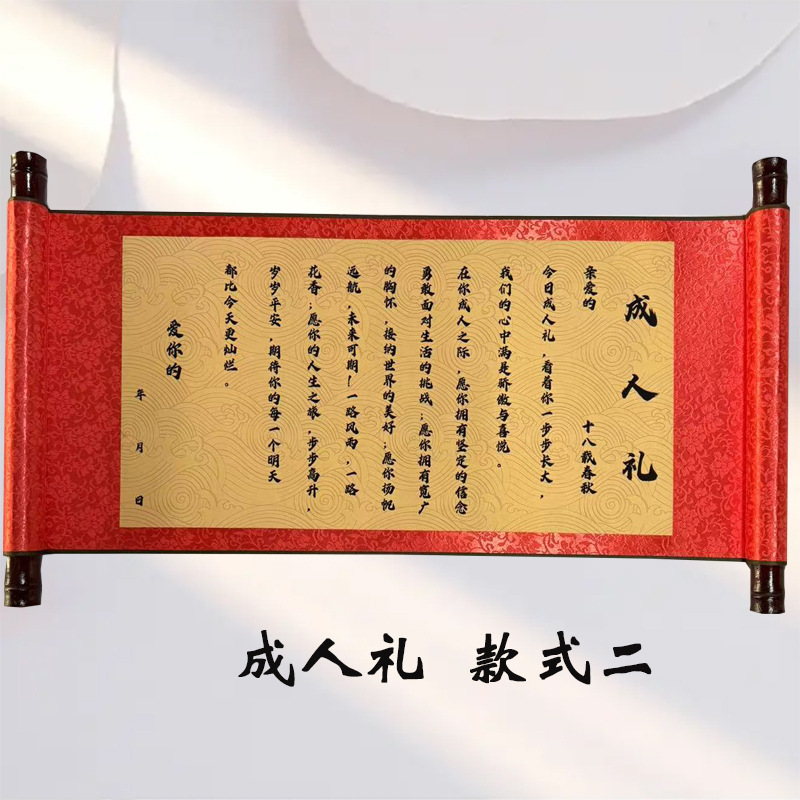 成人礼
亲爱的 十八载春秋
今日成人礼，看着你一步步长大，
我们的心中满是骄傲与喜悦。
在你成人之际，愿你拥有坚定的信念
勇敢面对生活的挑战；愿你拥有宽广
的胸怀，接纳世界的美好；愿你扬帆
远航，未来可期！一路风雨，一路
花香；愿你的人生之旅，步步高升，
岁岁平安，期待你的每一个明天
都比今天更灿烂。
爱你的
年 月 日
成人礼 款式二